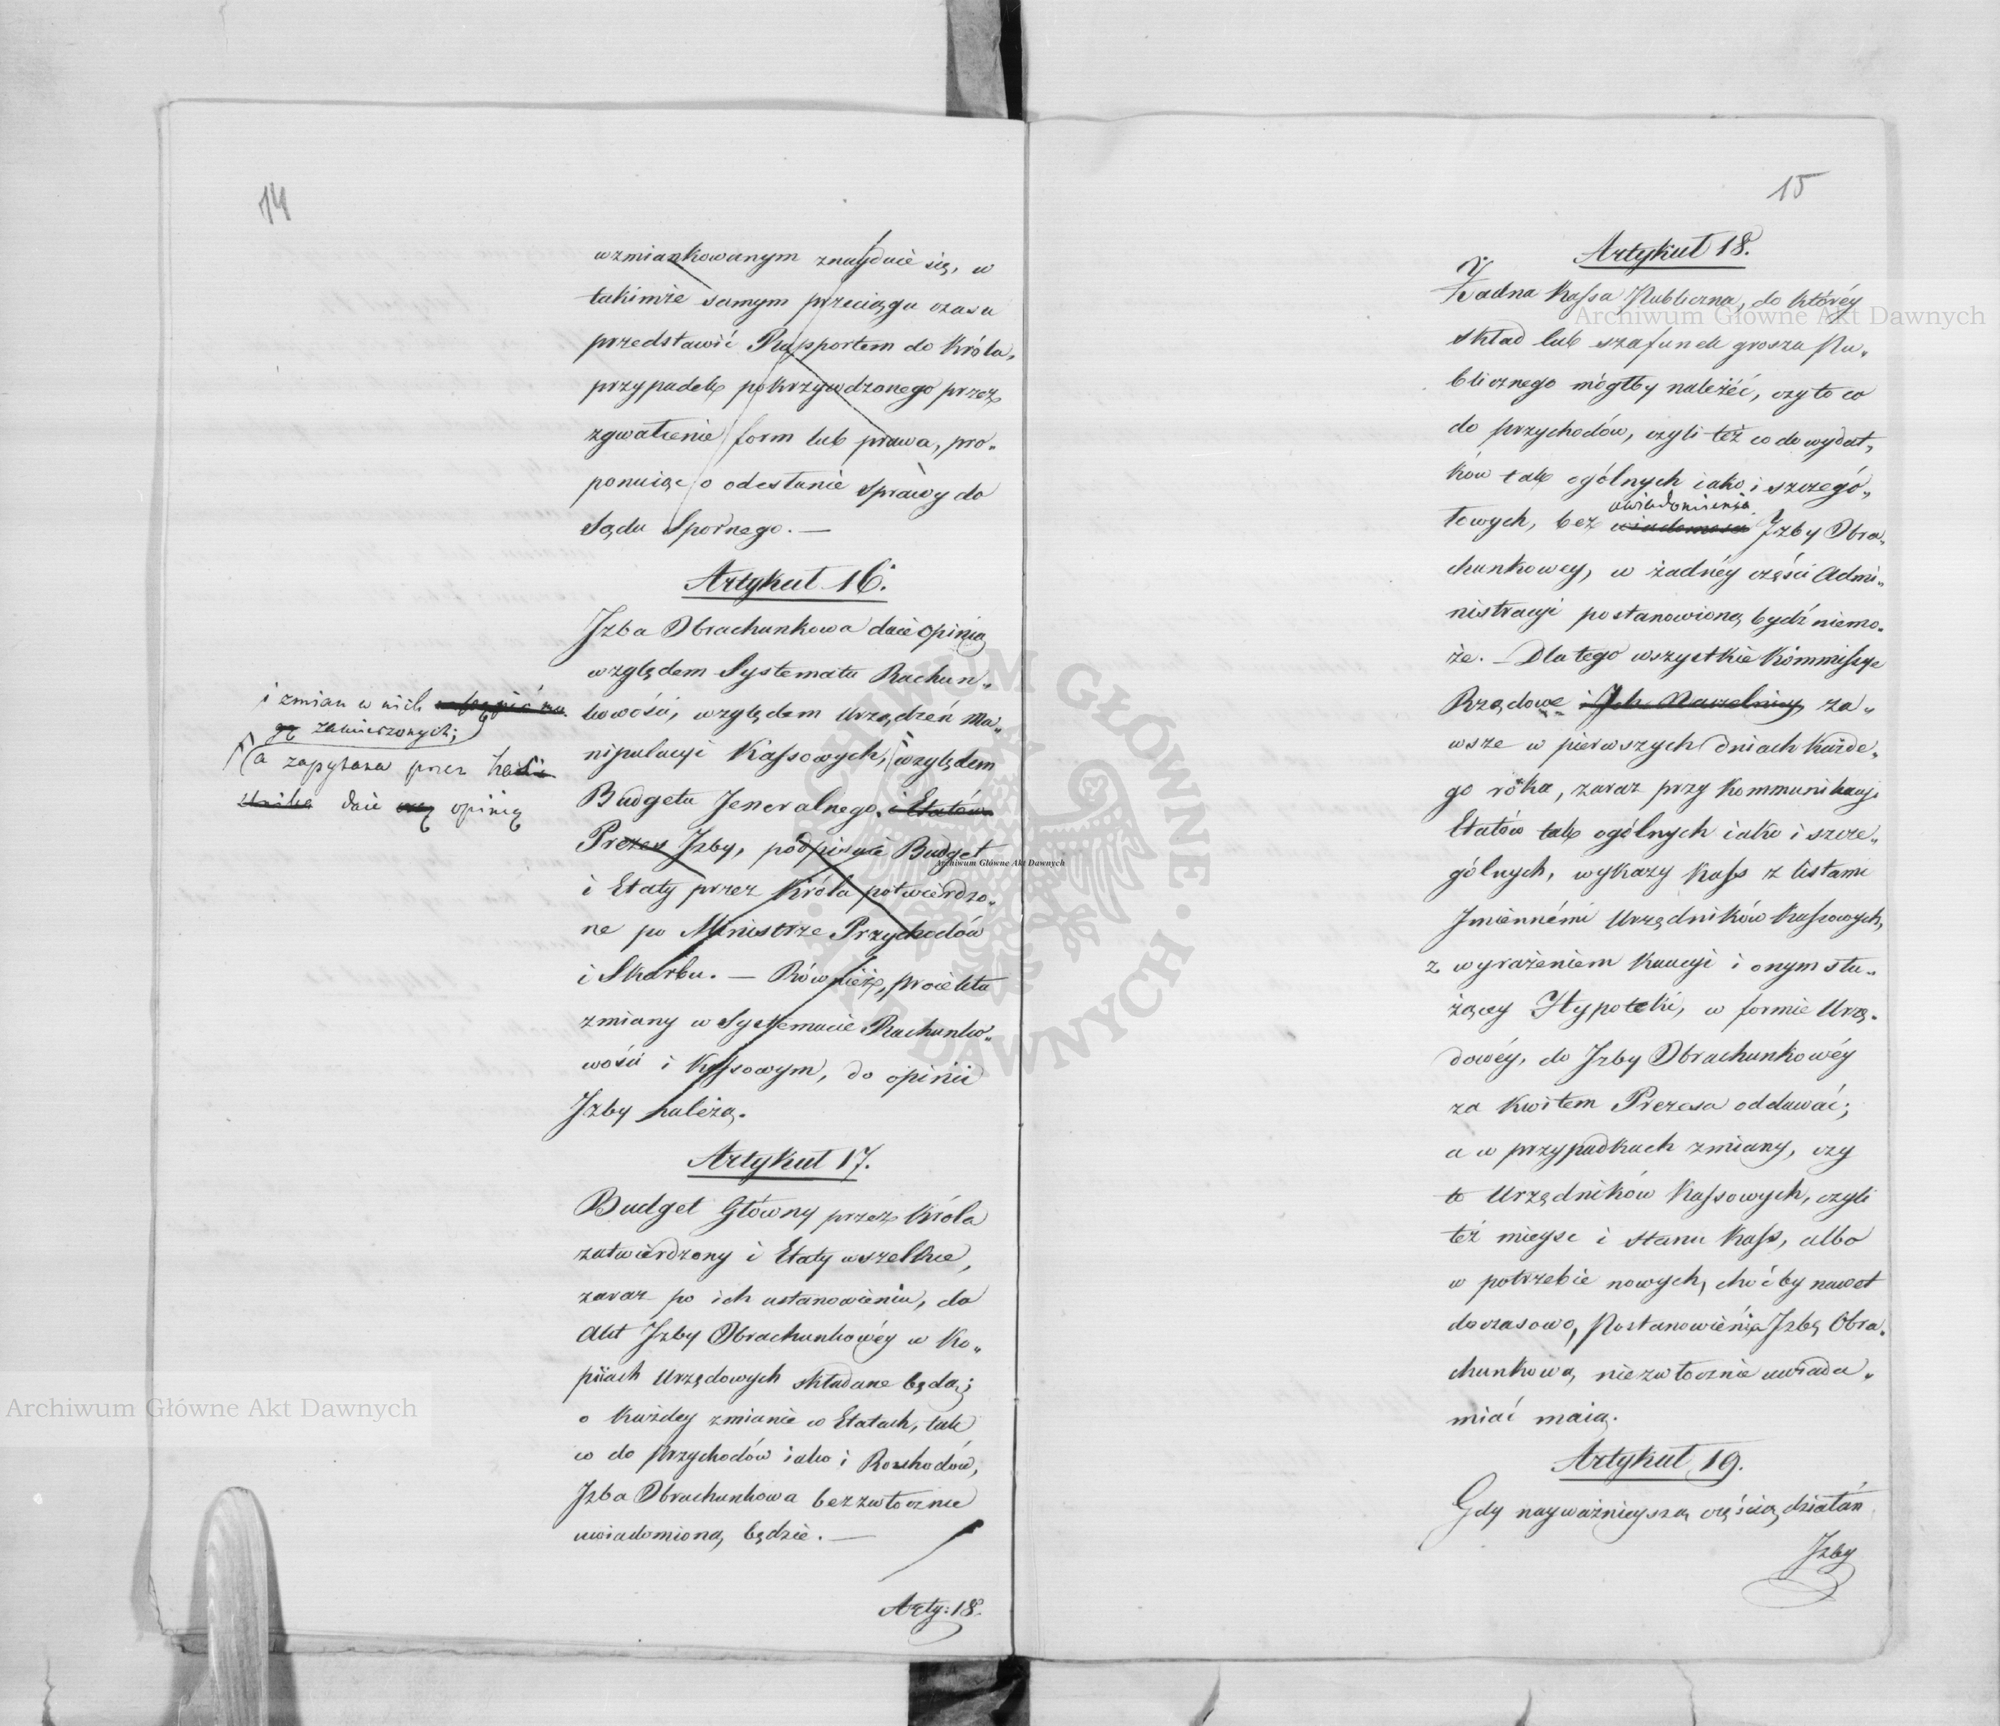 14
wzmiankowanym znayduie się, w
takimże samym przeciągu czasu
przedstawić Rapportem do Króla,
przypadek pokrzywdzonego przez
zgwałcenie form lub prawa, pro„
ponuiąc o odesłanie sprawy do
Sądu Spornego. —
Artykuł 16.
Izba Obrachunkowa daie opinią
względem Systematu Rachun„
kowości, względem Urządzeń Ma„
nipulacyi Kassowych, względem
Budgetu Jeneralnego, i Etatów
Prezes Izby, podpisuie Budget
i Etaty przez Króla potwierdzo„
ne po Ministrze Przychodów
i Skarbu. — Również, proiekta
zmiany w Systemacie Rachunko„
wości i Kassowym, do opinii
Izby należą.
i zmian w nich
zamierzonych;
a zapytana przez
daie opinią
Artykuł 17.
Budget Główny przez Króla
zatwierdzony i Etaty wszelkie,
zaraz po ich ustanowieniu, do
Akt Izby Obrachunkowéy w Ko„
piiach Urzędowych składane będą;
o każdey zmianie w Etatach, tak
co do Przychodów iako i Rozchodów,
Izba Obrachunkowa bezzwłocznie
uwiadomioną będzie. —
Arty: 18.
15
Artykuł 18.
Żadna Kassa Publiczna, do któréy
skład lub szafunek grosza Pu„
blicznego mógłby należéć, czy to co
do przychodów, czyli też co do wydat„
ków tak ogólnych iako i szczegó„
uwiadomienia
łowych, bez wiadomości Izby Obra„
chunkowey, w żadnéy części Admi„
nistracyi postanowioną bydź niemo„
że. — Dlatego wszystkie Kommissye
Rządowe i Ich Naczelnicy za„
wsze w pierwszych dniach każde„
go roku, zaraz przy kommunikacyi
Etatów tak ogólnych iako i szcze„
gólnych, wykazy Kass z listami
Imiennémi Urzędników Kassowych,
z wyrażeniem Kaucyi i onym słu„
żącey Hypoteki, w formie Urzę„
dowéy, do Izby Obrachunkowéy
za Kwitem Prezesa oddawać;
a w przypadkach zmiany, czy
to Urzędników Kassowych, czyli
też mieysc i stanu Kass, albo
w potrzebie nowych, choćby nawet
doczasowo, Postanowienia Izbę Obra„
chunkową niezwłocznie uwiada„
miać maią.
Artykuł 19.
Gdy nayważnieyszą częścią działań
Izby
Archiwum Główne Akt Dawnych
Archiwum Główne Akt Dawnych
Archiwum Główne Akt Dawnych
ARCHIWUM GŁÓWNE AKT DAWNYCH